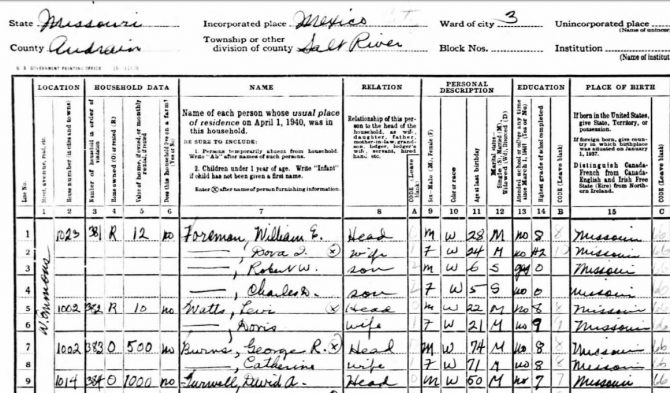 State Missouri Incorporated place Mexico Ward of city 3 Unincorporated place
(Name of unincor
County Audrain Township or other division of county Salt River Block Nos. Institution
(Name of institut
U. S. GOVERNMENT PRINTING OFFICE
LOCATION HOUSEHOLD DATA NAME RELATION PERSONAL DESCRIPTION EDUCATION PLACE OF BIRTH
Line No.
Street, avenue, road, etc.
House number (in cities and towns)
Number of household in order of visitation
Home owned (O) or rented (R)
Value of home, if owned, or monthly rental, if rented
Does this household live on a farm? (Yes or No)
Name of each person whose usual place of residence on April 1, 1940, was in this household.
BE SURE TO INCLUDE:
1. Persons temporarily absent from household. Write "Ab" after names of such persons.
2. Children under 1 year of age. Write "Infant" if child has not been given a first name.
Enter ⓧ after name of person furnishing information.
Relationship of this person to the head of the household, as wife, daughter, father, mother-in-law, grandson, lodger, lodger's wife, servant, hired hand, etc.
CODE (Leave blank)
Sex—Male (M), Female (F)
Color or race
Age at last birthday
Marital status—Single (S), Married (M), Widowed (Wd), Divorced (D)
Highest grade of school completed
CODE (Leave blank)
If born in the United States, give State, Territory, or possession.
If foreign born, give country in which birthplace was situated on January 1, 1937.
Distinguish Canada-French from Canada-English and Irish Free State (Eire) from Northern Ireland.
CODE (Leave blank)
1 2 3 4 5 6 7 8 A 9 10 11 12 13 14 B 15 C
1 1023 381 R 12 no Foreman, William E. Head M W 28 M no 8 Missouri
2 ——, Dova I. ⓧ wife F W 24 M no H2 Missouri
3 ——, Robert W. son M W 6 S 0 Missouri
4 ——, Charles D. son F W 5 S no 0 Missouri
N. Emmons
5 1002 382 R 10 no Watts, Levi ⓧ Head M W 22 M no 8 Missouri
6 ——, Doris wife F W 21 M no 9 Missouri
7 1002 383 O 500 no Burns, George R. ⓧ Head M W 74 M no 8 Missouri
8 ——, Catherine wife F W 71 M no 8 Missouri
9 1014 384 O 1000 no David A. Head M W 50 M no 7 Missouri